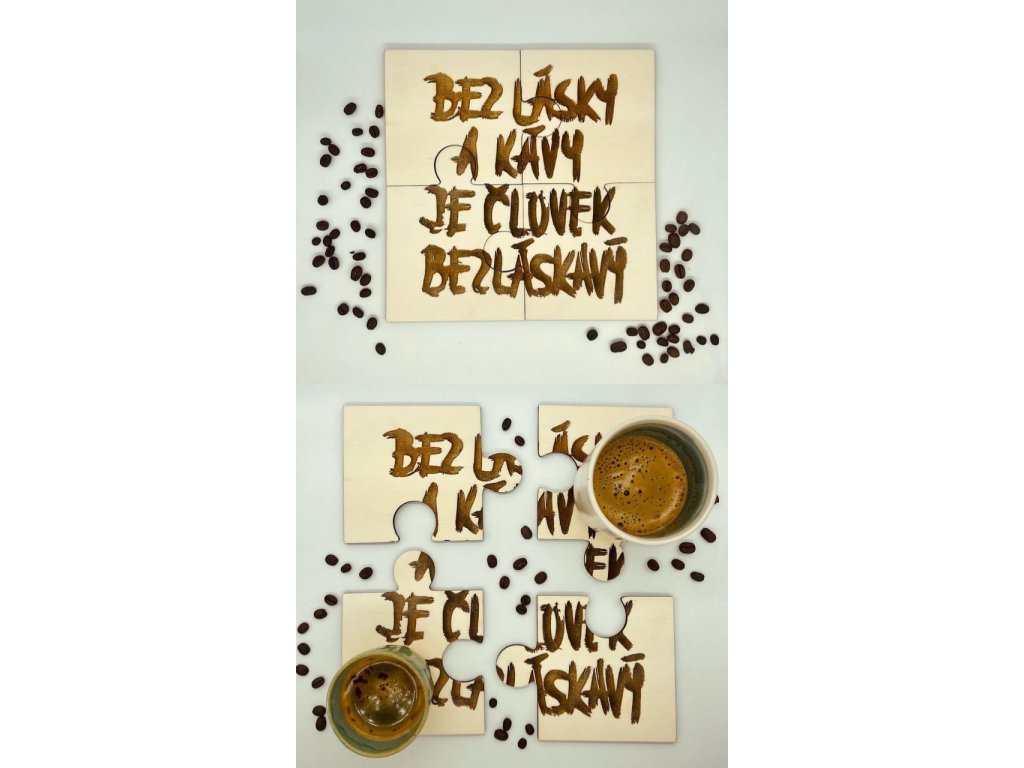 BEZ LÁSKY
A KÁVY
JE ČLOVEK
BEZLÁSKAVÝ
BEZ LÁSK
A KÁV
JE ČLOVEK
BEZLÁSKAVÝ